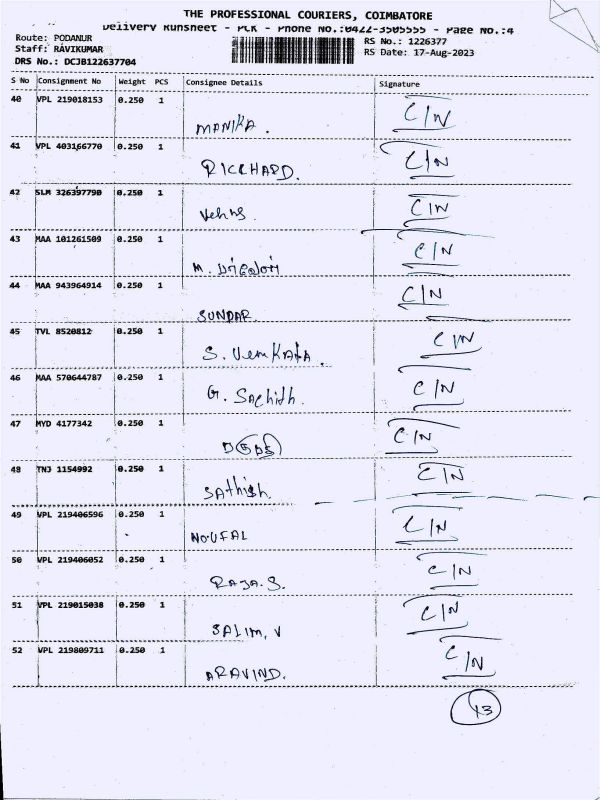 THE PROFESSIONAL COURIERS, COIMBATORE
Delivery Runsheet - PCK - Phone No.:0422-3505555 - Page No.:4
Route: PODANUR
Staff: RAVIKUMAR
DRS No.: DCJB122637704
RS No.: 1226377
RS Date: 17-Aug-2023
S No Consignment No Weight PCS Consignee Details Signature
40 VPL 219018153 0.250 1 MANIKA. C/N
41 VPL 403166770 0.250 1 RICCHARD. C/N
42 SLM 326397790 0.250 1 C/N
43 MAA 101261509 0.250 1 M. C/N
44 MAA 943964914 0.250 1 SUNDAR. C/N
45 TVL 8520812 0.250 1 S. Venkata. C/N
46 MAA 570644787 0.250 1 G. Sachith. C/N
47 MYD 4177342 0.250 1 C/N
48 TNJ 1154992 0.250 1 SAthish. C/N
49 VPL 219406596 0.250 1 NOUFAL C/N
50 VPL 219406052 0.250 1 RAJA.S. C/N
51 VPL 219015038 0.250 1 SALIM, V C/N
52 VPL 219809711 0.250 1 ARAVIND. C/N
13